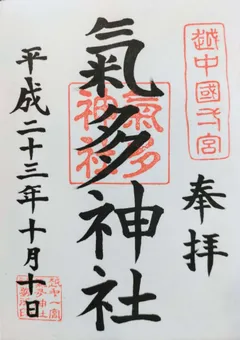 越中國一宮
奉拝
氣多神社
氣多神社
平成二十三年十月十日